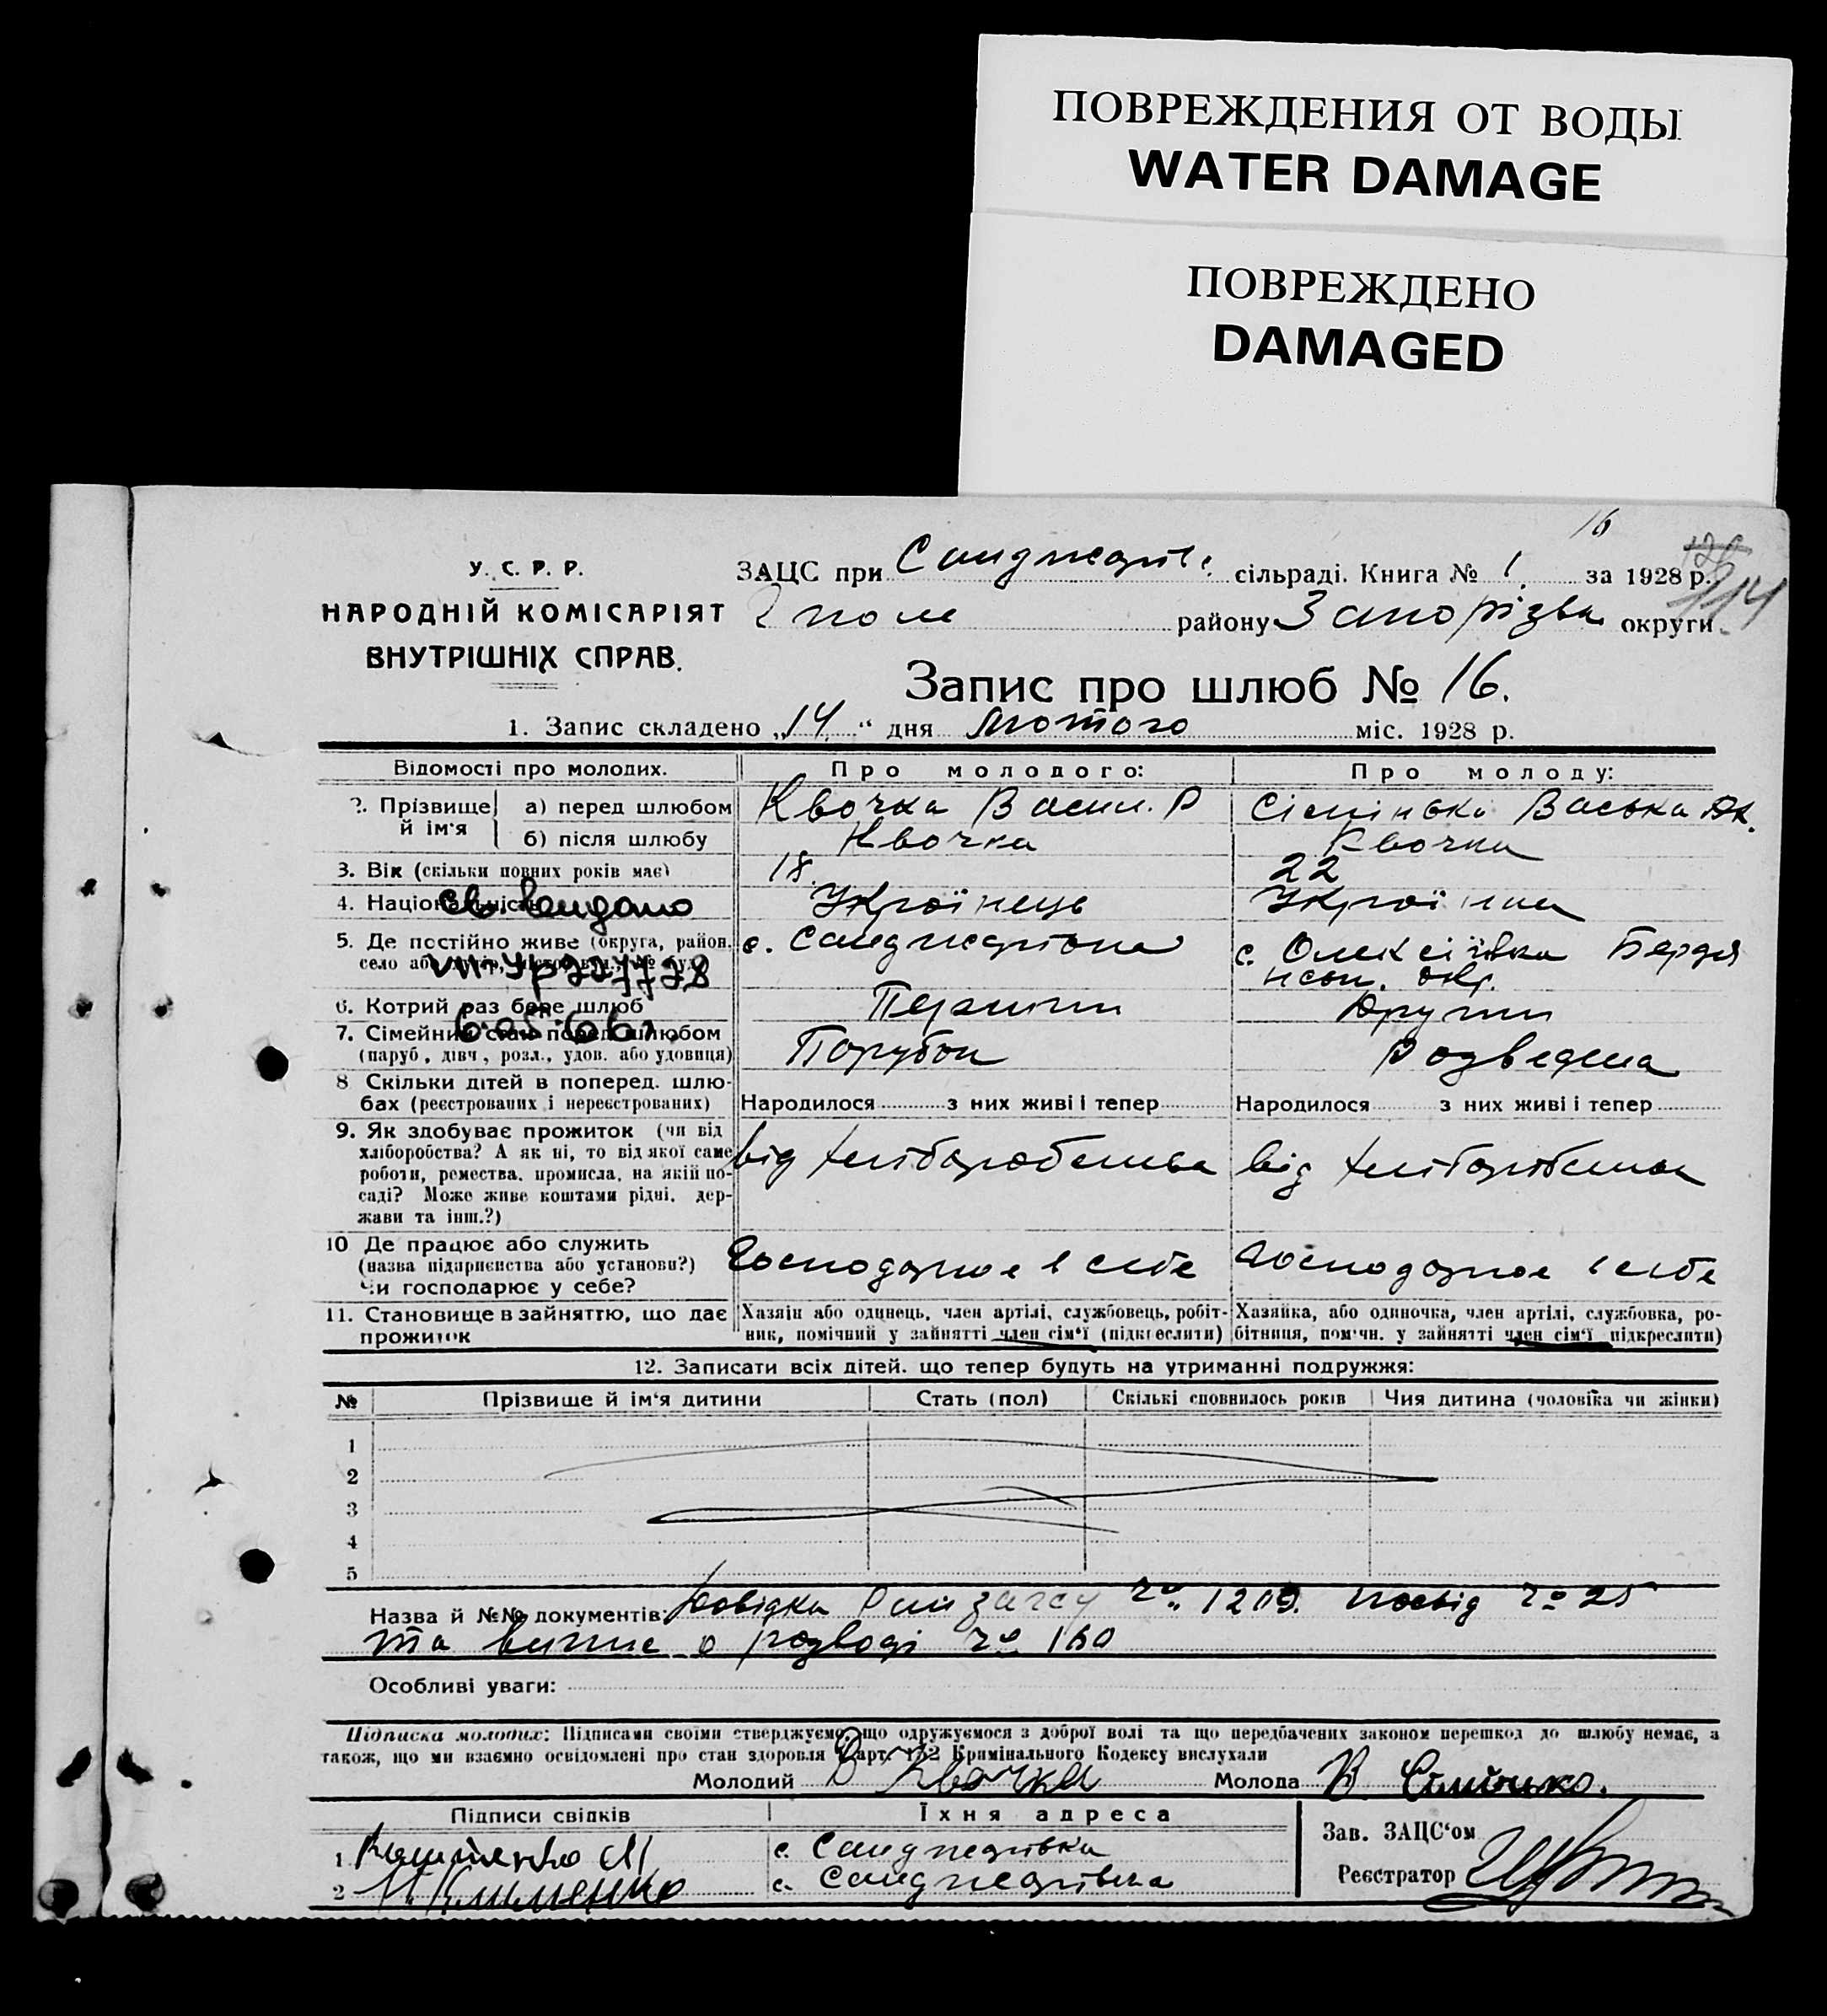 ПОВРЕЖДЕНИЯ ОТ ВОДЫ
WATER DAMAGE
ПОВРЕЖДЕНО
DAMAGED
16
114
У. С. Р. Р.
НАРОДНІЙ КОМІСАРІЯТ
ВНУТРІШНІХ СПРАВ.
ЗАЦС при сільраді. Книга № 1. за 1928 р.
району Запорізьк округи
Запис про шлюб № 16.
1. Запис складено „14“ дня лютого міс. 1928 р.
Відомості про молодих. Про молодого: Про молоду:
2. Прізвище й ім'я
а) перед шлюбом Квочка Васил. Р Васька
б) після шлюбу Квочка Квочка
3. Вік (скільки повних років має) 18. 22
4. Національність Україінець Україінка
св. видано
5. Де постійно живе (округа, район, село або хутір, місто, вул., № буд.) с. с. Олексіівка Бердянськ. окр.
VIII-УР 227728
6. Котрий раз бере шлюб Перший Другий
6.05.66
7. Сімейний стан перед шлюбом Парубок Розведена
(паруб., дівч., розл., удов. або удовиця)
8 Скільки дітей в поперед. шлю-
бах (реєстрованих і нереєстрованих) Народилося з них живі і тепер Народилося з них живі і тепер
9. Як здобуває прожиток (чи від
хліборобства? А як ні, то від якої саме від хліборобства від хліборобства
роботи, ремества, промисла, на якій по-
саді? Може живе коштами рідні, дер-
жави та інш.?)
10 Де працює або служить
(назва підприємства або установи?) Господарює в себе Господарює в себе
Чи господарює у себе?
11. Становище в зайняттю, що дає прожиток
Хазяїн або одинець, член артілі, службовець, робіт-
ник, помічний у зайнятті член сім'ї (підкреслити)
Хазяйка, або одиночка, член артілі, службовка, ро-
бітниця, помічн. у зайнятті член сім'ї підкреслити)
12. Записати всіх дітей, що тепер будуть на утриманні подружжя:
№ Прізвище й ім'я дитини Стать (пол) Скількі сповнилось років Чия дитина (чоловіка чи жінки)
1
2
3
4
5
Назва й №№ документів: Довідка Рай загсу № 1209. посвід № 25
та випис о розводі № 160
Особливі уваги:
Підписка молодих: Підписами своїми стверджуємо, що одружуємося з доброї волі та що передбачених законом перешкод до шлюбу немає, а
також, що ми взаємно освідомлені про стан здоровля й арт. 152 Кримінального Кодексу вислухали
Молодий В Квочка Молода В.
Підписи свідків Їхня адреса
1. с.
2 Клименко с.
Зав. ЗАЦС'ом
Реєстратор